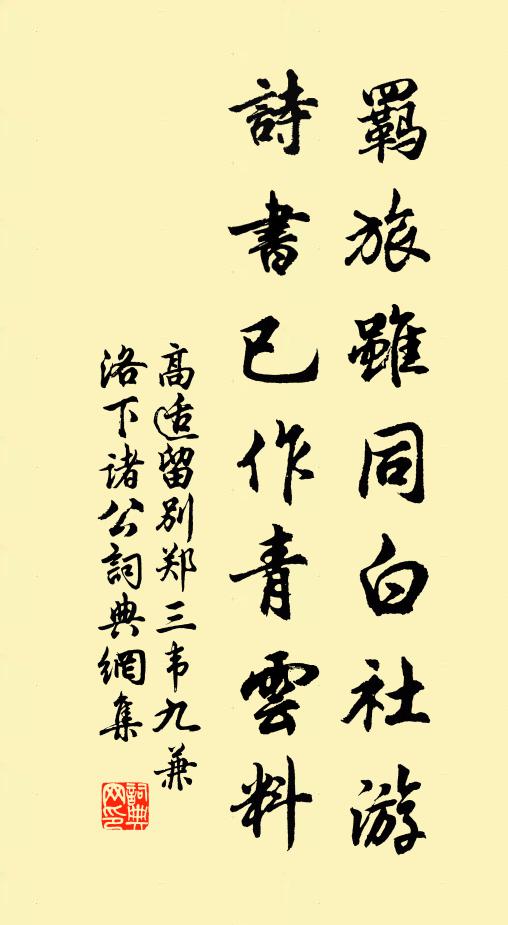 羈旅雖同白社游
詩書已作青雲料
高适留別郑三韦九兼
洛下诸公詞典網集
詞典网印